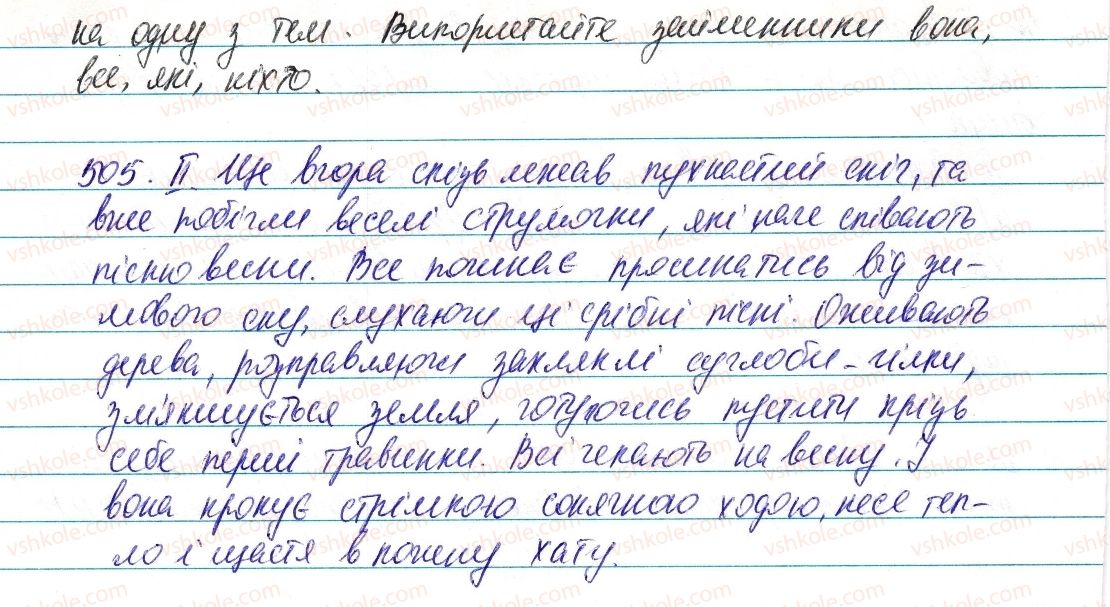 на одну з тем. Використайте займенники вона,
всі, які, ніхто.
505. II. Ще вгора скізь лежав пухнастий сніг, та
вже побігли веселі струмочки, які наче співають
пісню весни. Все починає просинатись від зи-
мового сну, слухаючи ці срібні пісні. Оживають
дерева, розправляючи заклякмі суглоби-гілки,
змʼякшується земля, готуючись пустити крізь
себе перші травинки. Всі чекають на весну. І
вона крокує стрімкою сонячною ходою, несе теп-
ло і щастя в кожну хату.